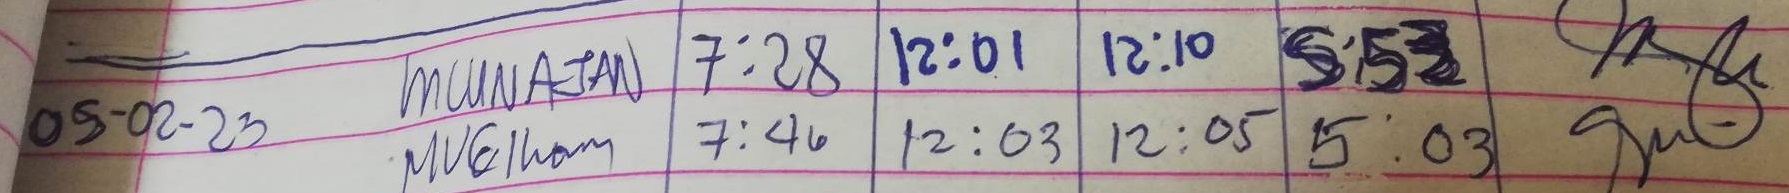 MUNAJAN 7:28 12:01 12:10 5:53
05-02-23 MVElham 7:46 12:03 12:05 5:03